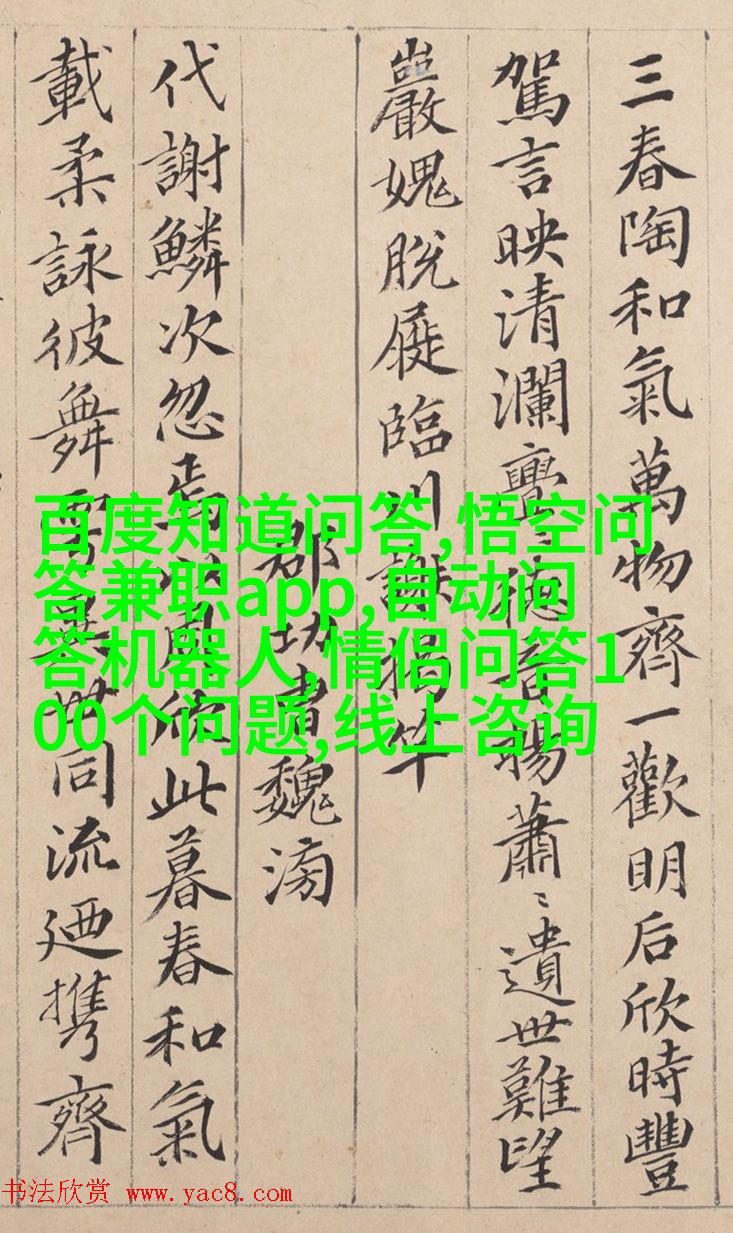 三春陶和氣萬物齊一歡明后欣時豐
駕言映清瀾亹〻德音暢蕭〻遺世難望
巖愧脫屣臨川謝揭竿
郡功曹魏滂
代謝鱗次忽焉以周欣此暮春和氣
載柔詠彼舞雩異世同流廼携齊
百度知道问答,悟空问
答兼职app,自动问
答机器人,情侣问答1
00个问题,线上咨询
书法欣赏 www.yac8.com